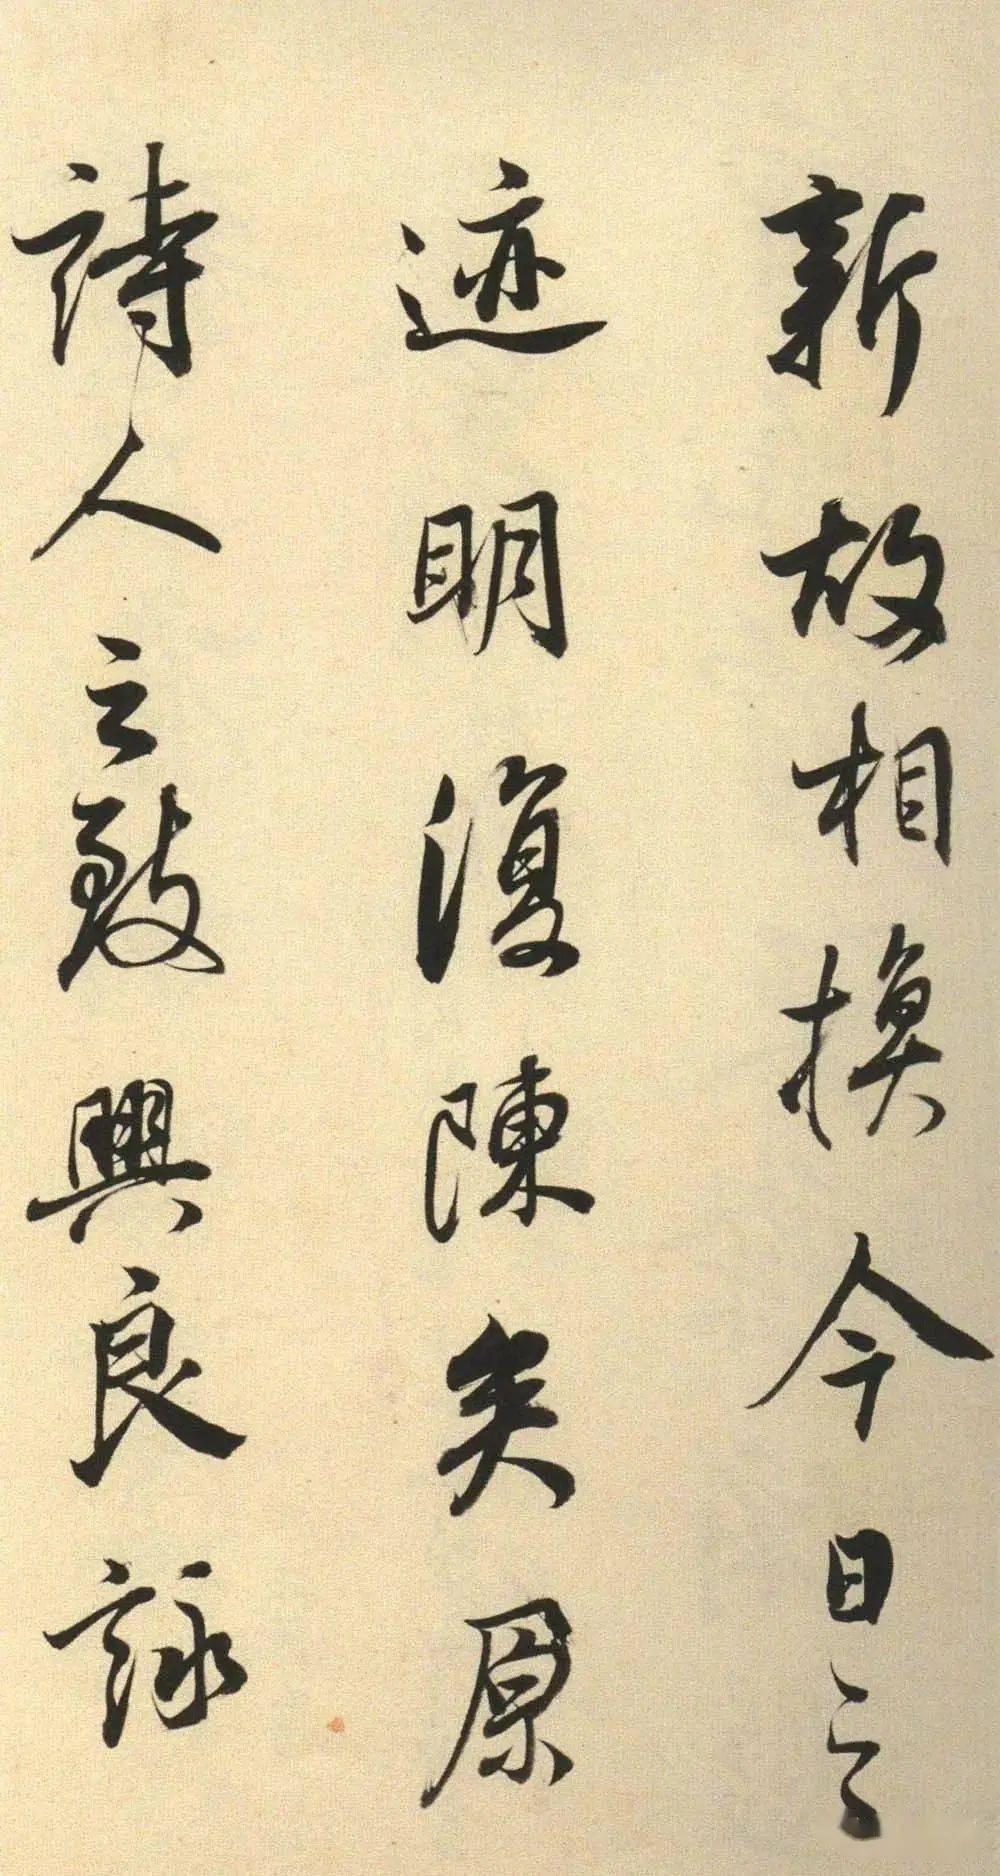 新故相換今日之
迹明復陳矣原
詩人之致興良詠